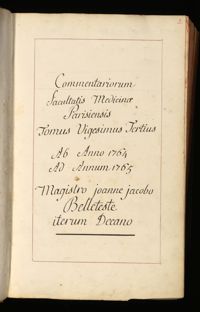 Commentariorum
Facultatis Medicinæ
Parisiensis
Tomus Vigesimus Tertius
Ab Anno 1764
AD Annum 1765
Magistro joanne jacobo
Belleteste
iterum Decano